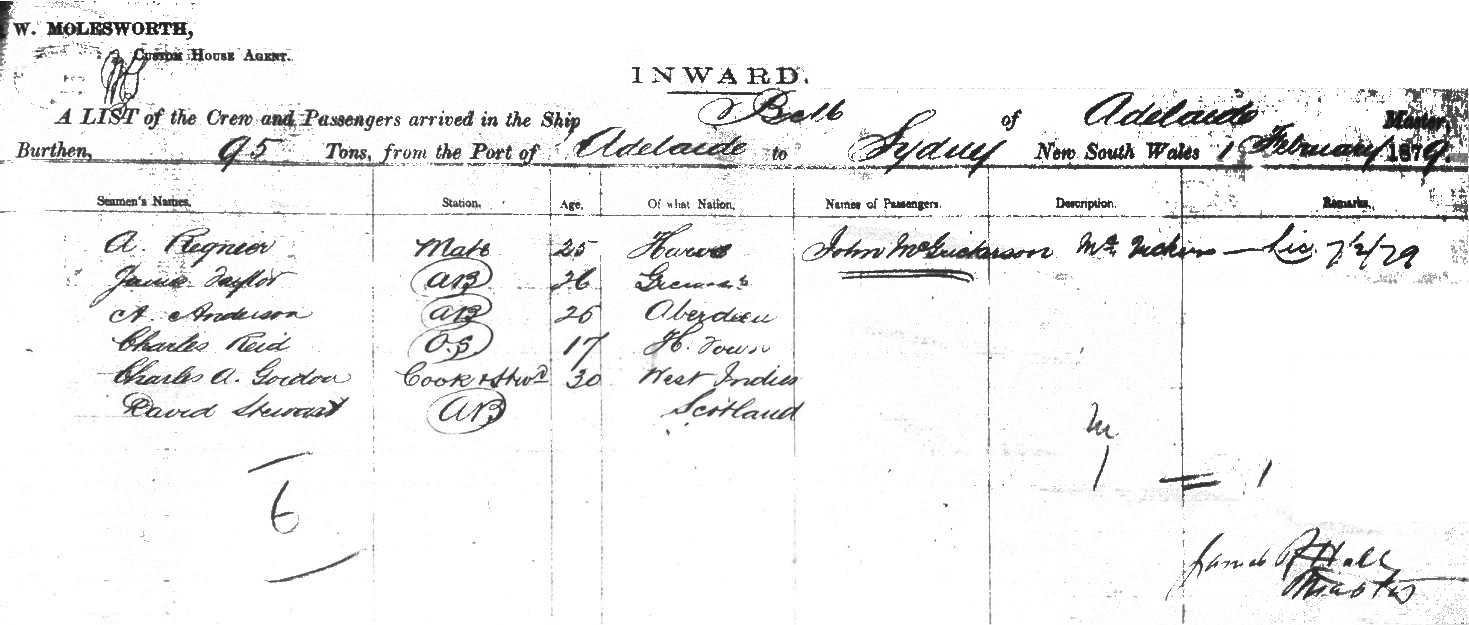 W. MOLESWORTH,
CUSTOM HOUSE AGENT.
INWARD.
A LIST of the Crew and Passengers arrived in the Ship Bell of Adelaide Master,
Burthen, 95 Tons, from the Port of Adelaide to Sydney New South Wales 1 February 1879.
Seamen's Names. Station. Age. Of what Nation. Names of Passengers. Description. Remarks.
A. Regneer Mate 25 Havre John Mc
James Taylor AB 26
A. Anderson AB 25 Aberdeen
Charles Reid O.S 17 H. Town
Charles A. Gordon Cook & Stwd 30 West Indies
David Stewart AB Scotland
m
1 = 1
6
James R Hall
Master